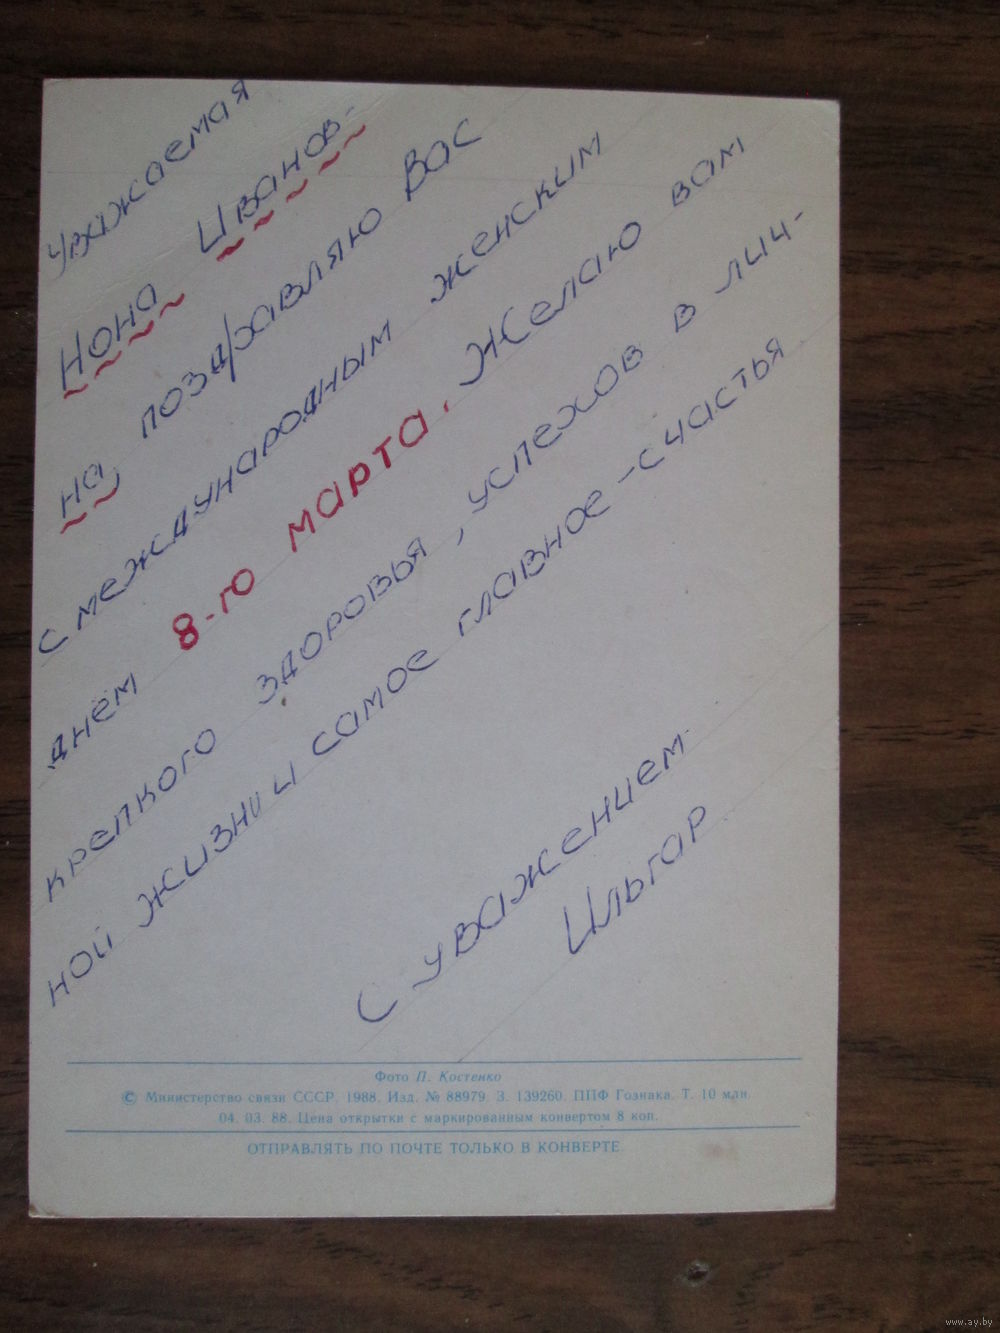 Уважаемая
Нона Иванов-
на, поздравляю Вас
с международным женским
днём 8-го марта. Желаю вам
крепкого здоровья, успехов в лич-
ной жизни и самое главное - счастья
С уважением
Ильгар
Фото П. Костенко
© Министерство связи СССР, 1988. Изд. № 88979. З. 139260. ППФ Гознака. Т. 10 млн.
04. 03. 88. Цена открытки с маркированным конвертом 8 коп.
ОТПРАВЛЯТЬ ПО ПОЧТЕ ТОЛЬКО В КОНВЕРТЕ
www.ay.by